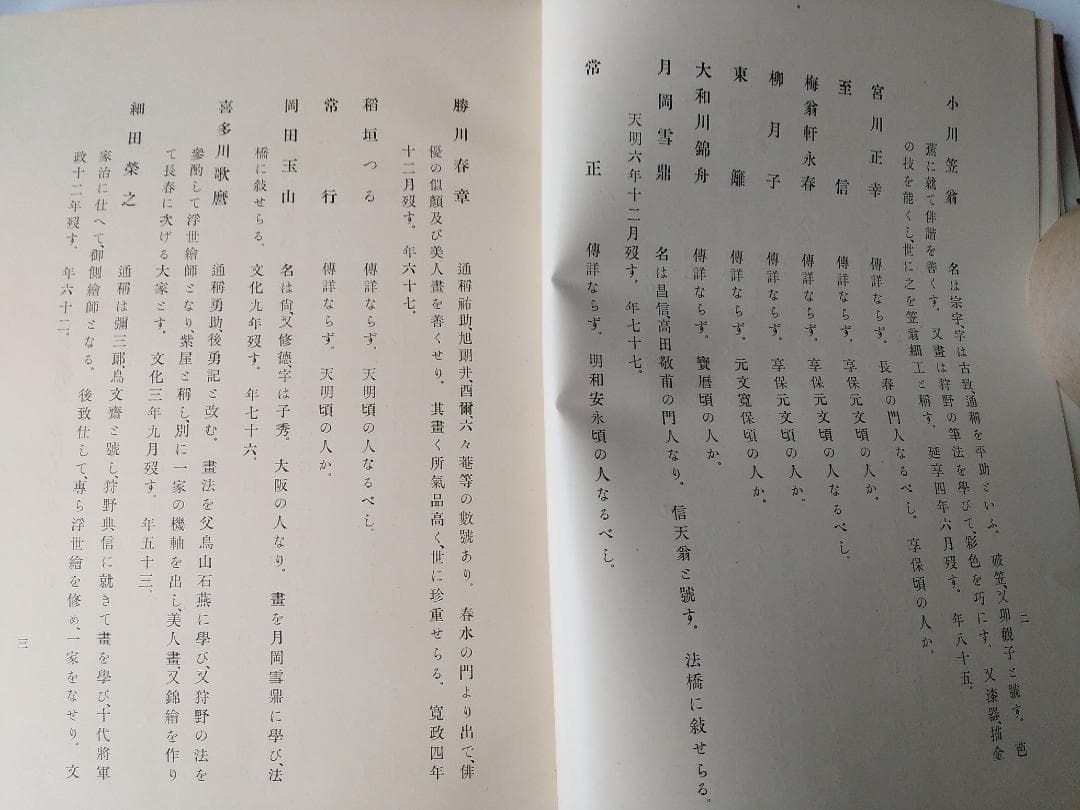 二
小川笠翁　名は宗宇、字は古致、通稱を平助といふ。破笠、又卯觀子と號す。芭
蕉に就て俳諧を善くす。又畫は狩野の筆法を學びて、彩色を巧にす。又漆器、描金
の技を能くし、世に之を笠翁細工と稱す。延享四年六月歿す。年八十五。
宮川正幸　長春の門人なるべし。享保頃の人か。
至信　傳詳ならず。享保元文頃の人か。
梅翁軒永春　傳詳ならず。享保元文頃の人なるべし。
柳月子　傳詳ならず。享保元文頃の人か。
東籬　傳詳ならず。元文寬保頃の人か。
大和川錦舟　傳詳ならず。寶曆頃の人か。
月岡雪鼎　名は昌信、高田敬甫の門人なり。信天翁と號す。法橋に敍せらる。
天明六年十二月歿す。年七十七。
常正　傳詳ならず。明和安永頃の人なるべし。
勝川春章　通稱祐助、旭朗井、酉爾、六々菴等の數號あり。春水の門より出で、俳
優の似顏及び美人畫を善くせり。其畫く所氣品高く、世に珍重せらる。寬政四年
十二月歿す。年六十七。
稻垣つる　傳詳ならず、天明頃の人なるべし。
常行　傳詳ならず。天明頃の人か。
岡田玉山　名は尙、又修德、字は子秀。大阪の人なり。畫を月岡雪鼎に學び、法
橋に敍せらる。文化九年歿す。年七十六。
喜多川歌麿　通稱勇助、後勇記と改む。畫法を父鳥山石燕に學び、又狩野の法を
參酌して浮世繪師となり、紫屋と稱し、別に一家の機軸を出し、美人畫、又錦繪を作り
て長春に次げる大家とす。文化三年九月歿す。年五十三。
細田榮之　通稱は彌三郞、鳥文齋と號し、狩野典信に就きて畫を學び、十代將軍
家治に仕へて、御側繪師となる。後致仕して、專ら浮世繪を修め、一家をなせり。文
政十二年歿す。年六十二。
三